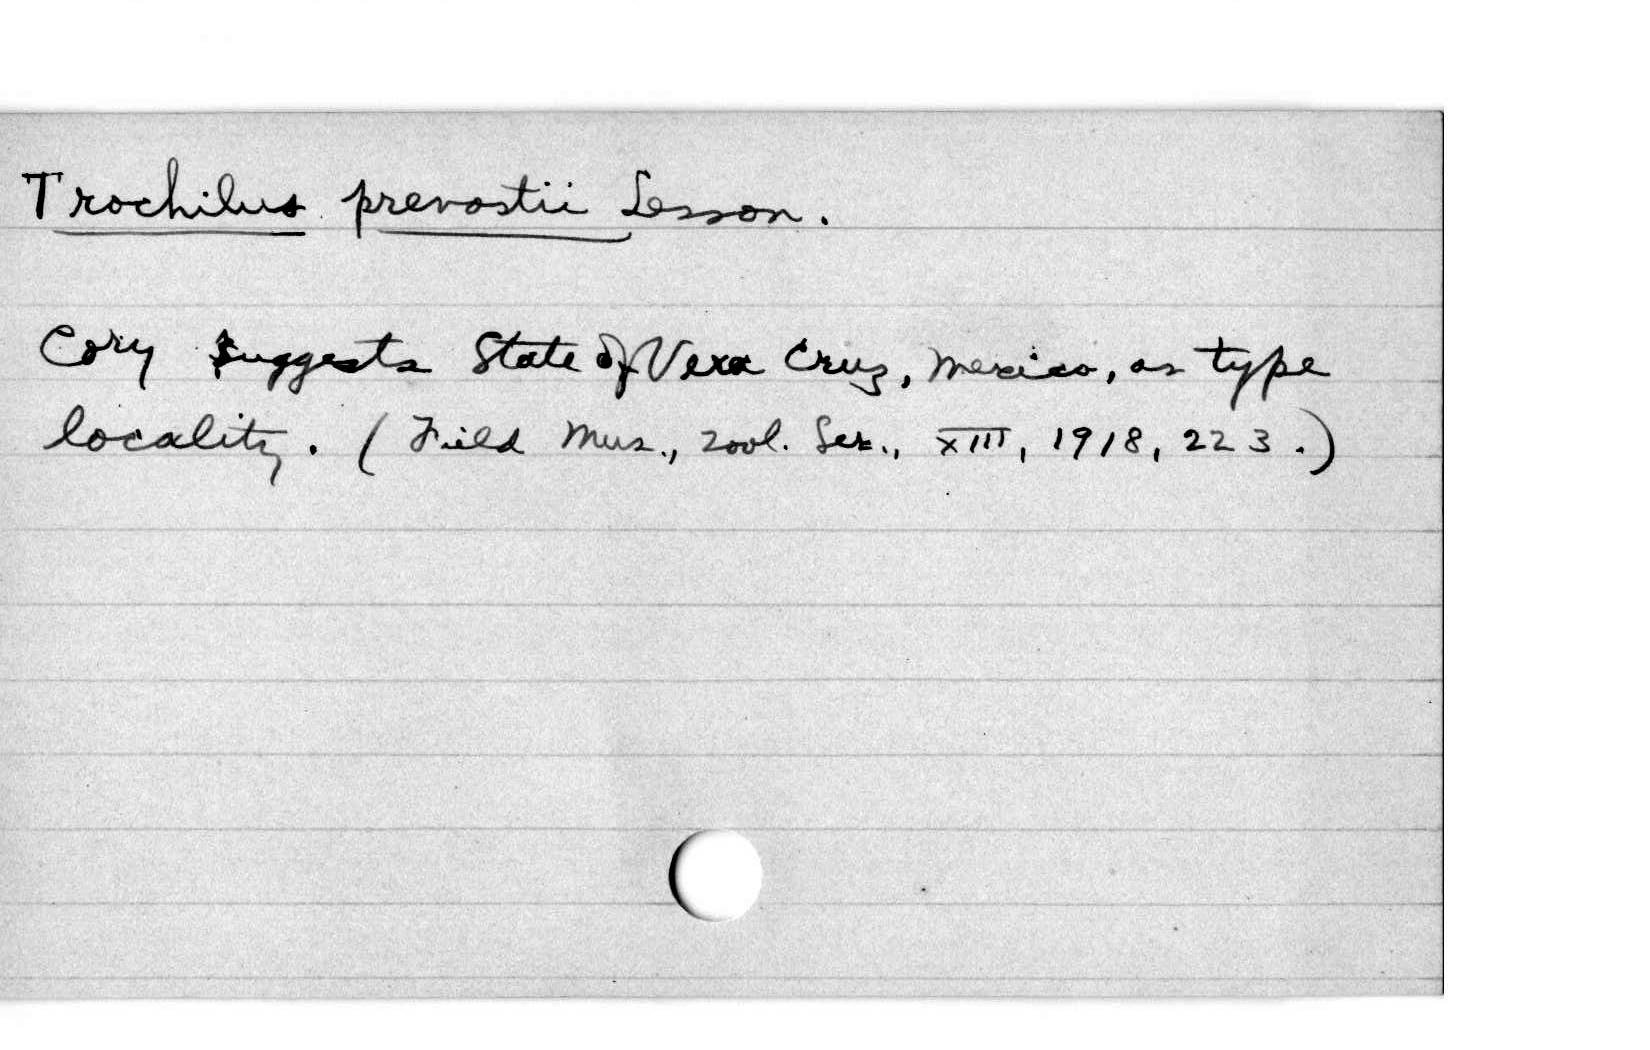 Trochilus prevostii Lesson.
Cory suggests State of Vera Cruz, Mexico, as type
locality. (Field Mus., Zool. Ser., XIII, 1918, 223.)